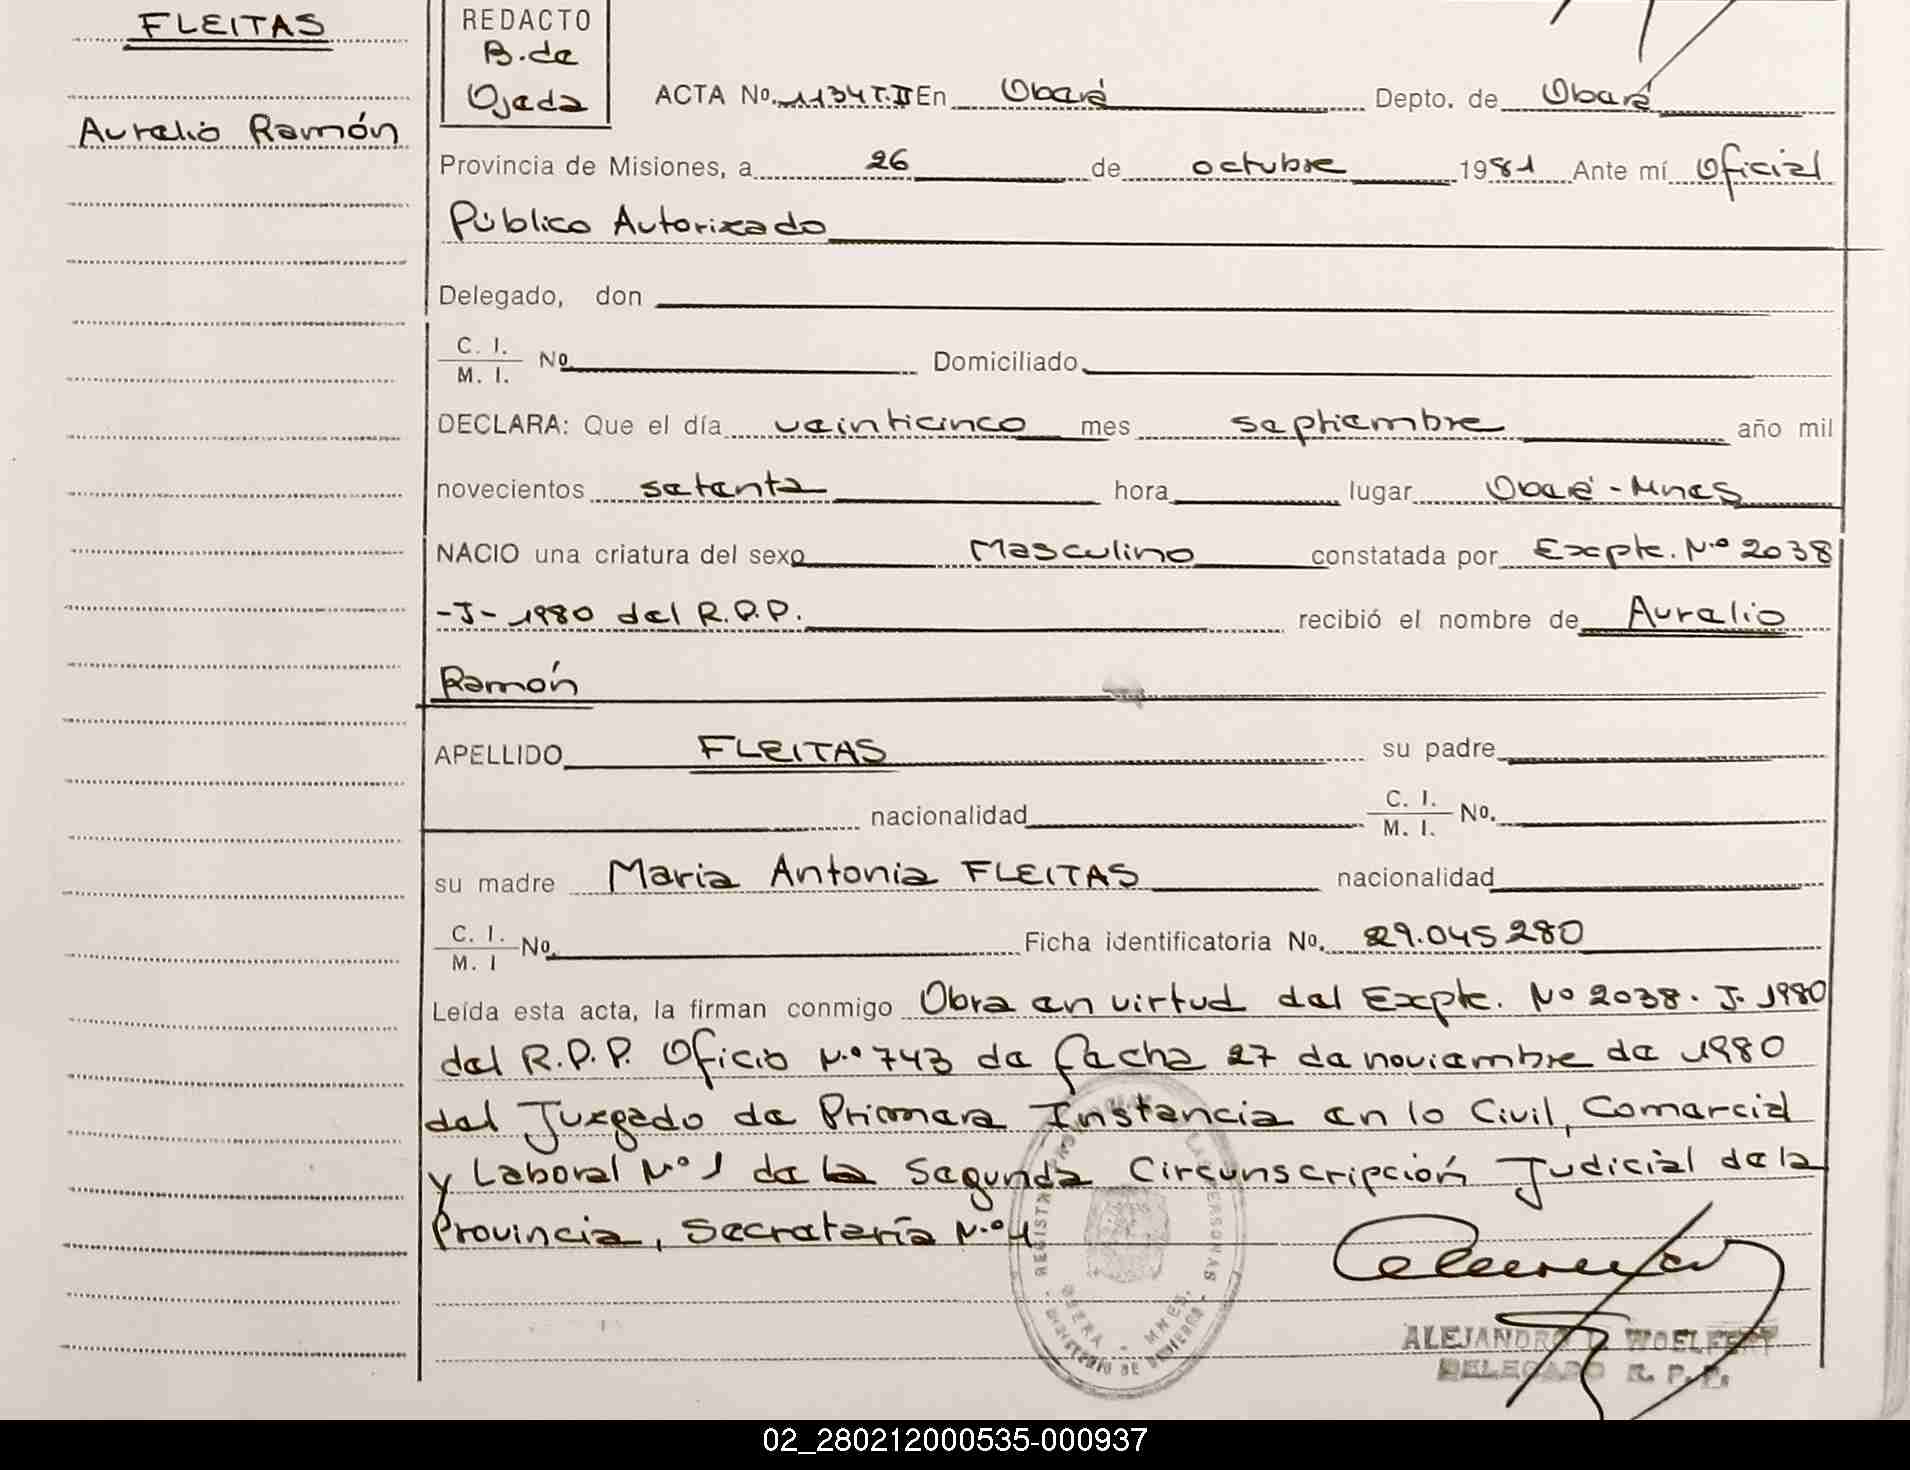 FLEITAS
Aurelio Ramón
REDACTO
B. de
Ojeda
ACTA No. 1134 T. II En Oberá Depto. de Oberá
Provincia de Misiones, a 26 de octubre 1981 Ante mí Oficial
Público Autorizado
Delegado, don
C. I.
M. I. No Domiciliado
DECLARA: Que el día veinticinco mes septiembre año mil
novecientos setenta hora lugar Oberá - Mnes
NACIO una criatura del sexo Masculino constatada por Expte. N.º 2038
-J- 1980 del R.P.P. recibió el nombre de Aurelio
Ramón
APELLIDO FLEITAS su padre
nacionalidad C. I.
M. I. No.
su madre Maria Antonia FLEITAS nacionalidad
C. I.
M. I No. Ficha identificatoria No. 29.045.280
Leída esta acta, la firman conmigo Obra en virtud del Expte. Nº 2038. J. 1980
del R.P.P. Oficio N.º 743 de fecha 27 de noviembre de 1980
del Juzgado de Primera Instancia en lo Civil, Comercial
y Laboral Nº 1 de la Segunda Circunscripción Judicial de la
Provincia, Secretaría N.º 4
OBERA - MNES.
ALEJANDRO WOELFERT
DELEGADO R. P. P.
02_280212000535-000937